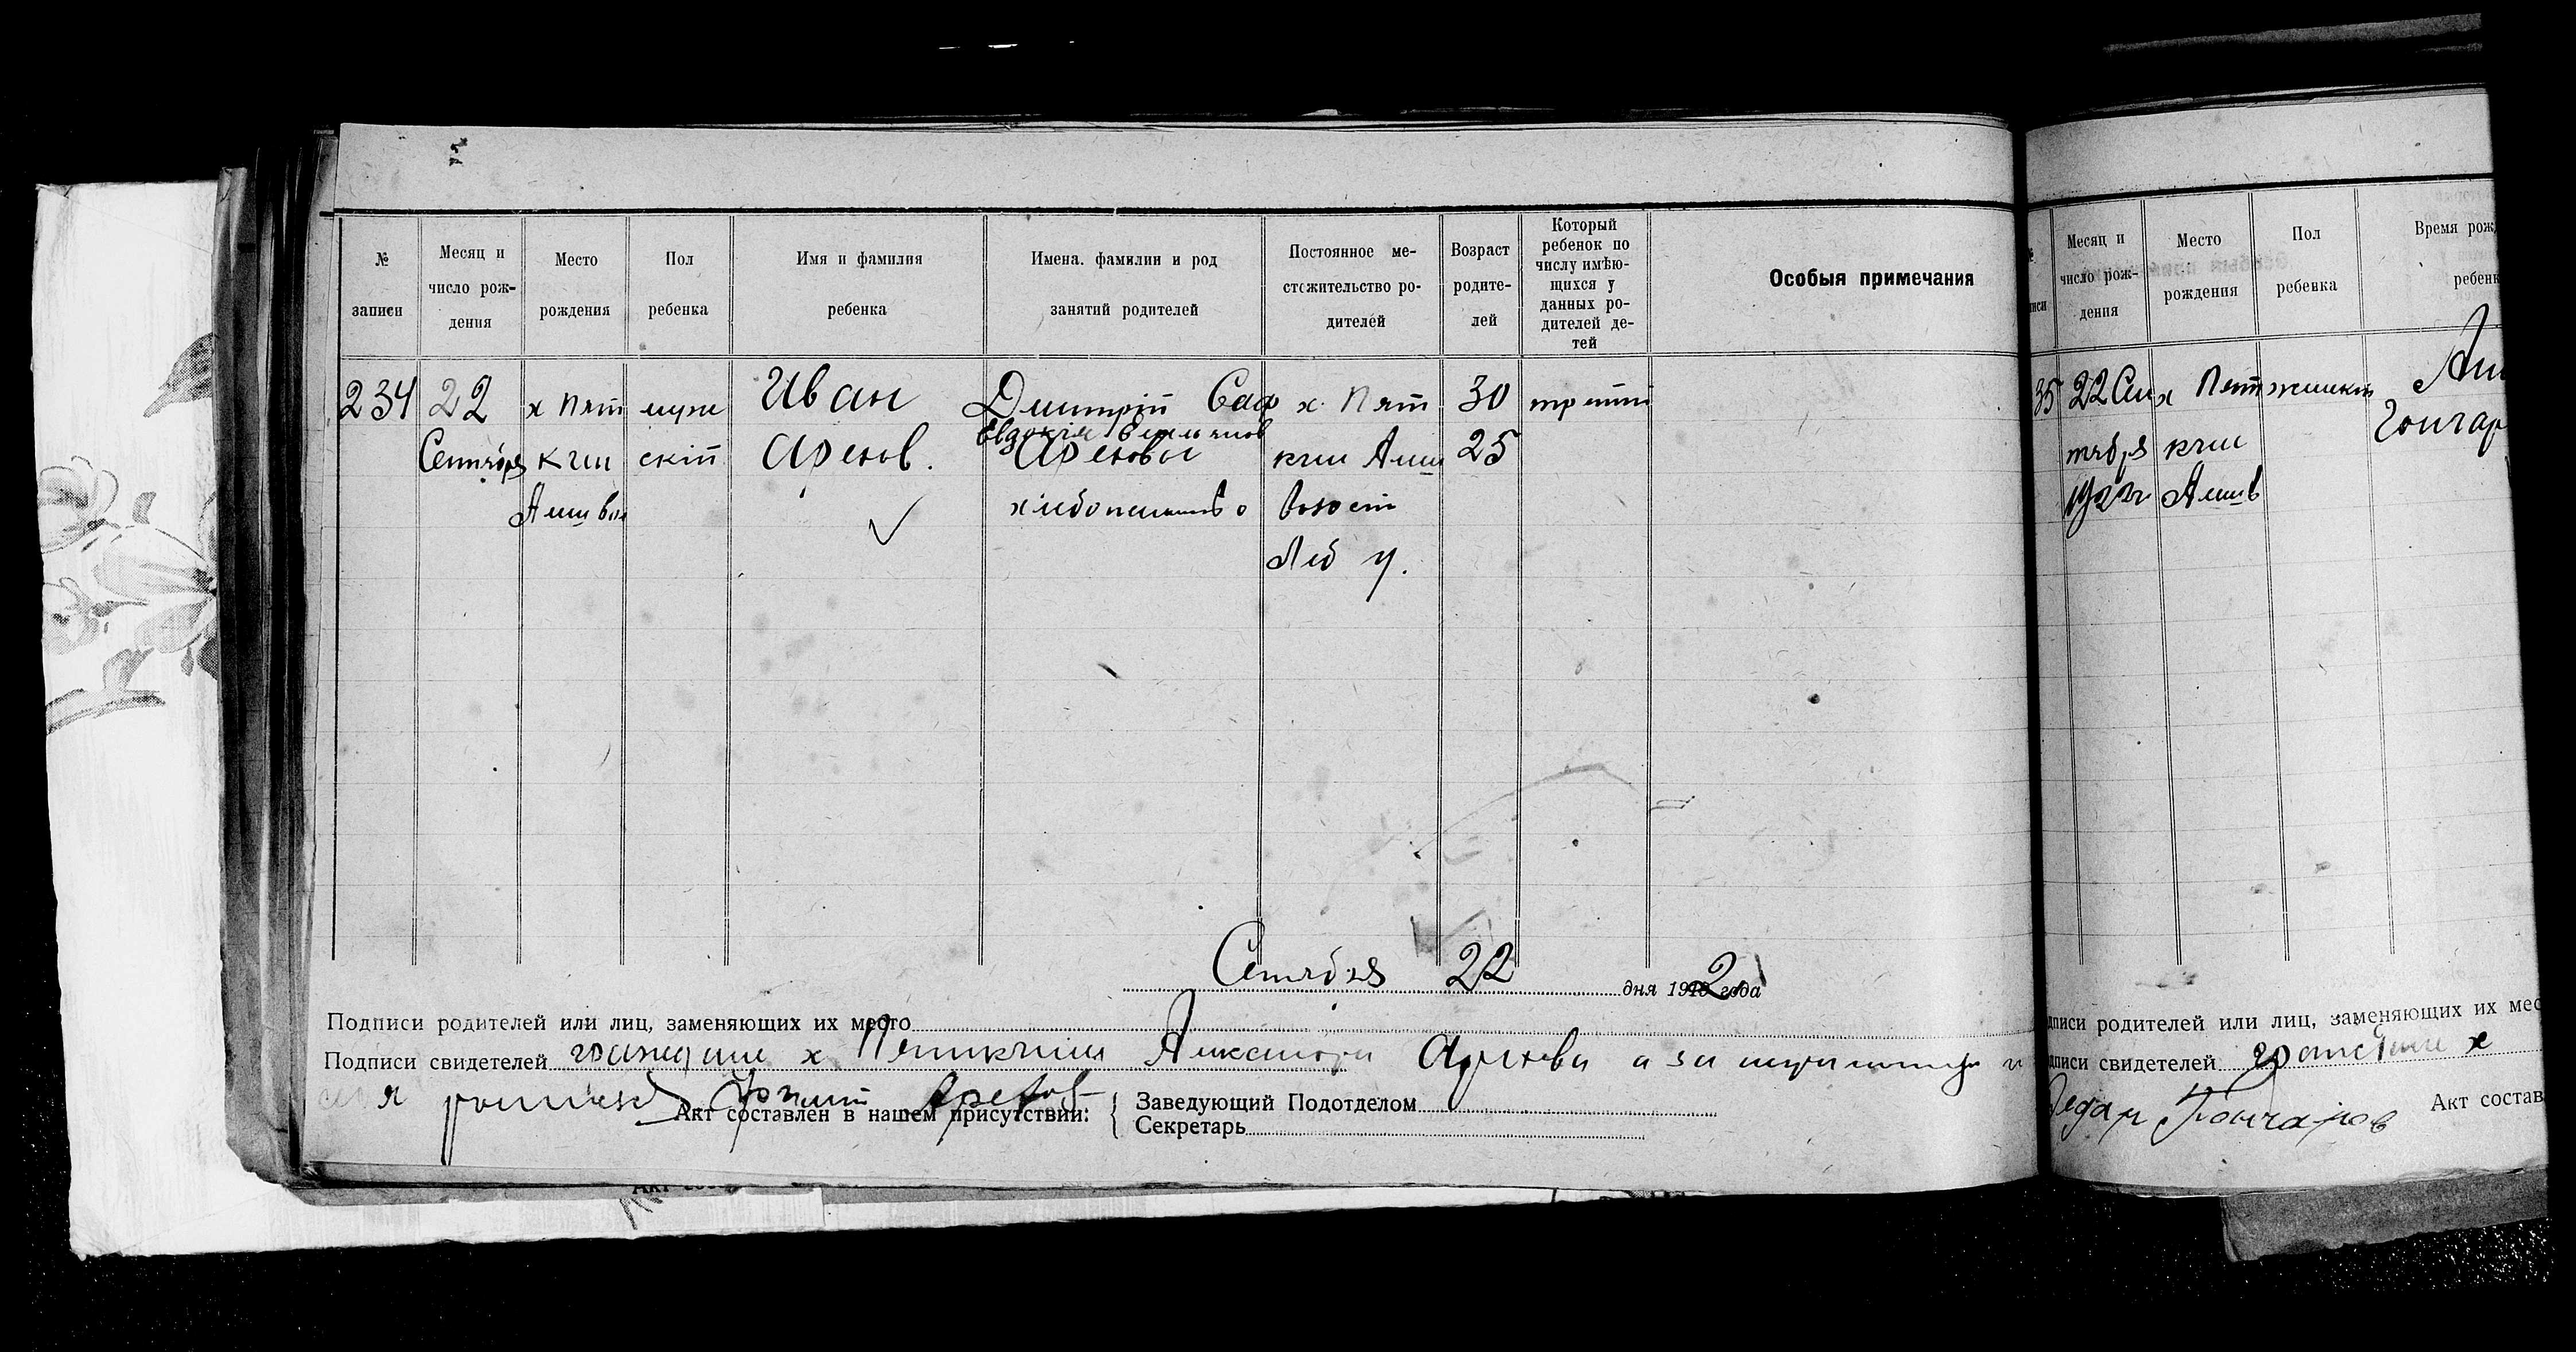 № записи
Месяц и число рождения
Место рождения
Пол ребенка
Имя и фамилия ребенка
Имена, фамилии и род занятий родителей
Постоянное местожительство родителей
Возраст родителей
Который ребенок по числу имѣющихся у данных родителей детей
Особыя примечания
234
22
Сентября
х Пят
кии
Алш вол
муж
скій
Иван
Арехов.
Дмитрій Сав
Евдокія Емельянов
Ареховы
хлебопашество
х. Пят
кии Алш
волост
Леб у.
30
25
третій
Сентября 22 дня 1922 года
Подписи родителей или лиц, заменяющих их место
Подписи свидетелей граждане х
я Арехов
Акт составлен в нашем присутствии:
Заведующий Подотделом
Секретарь
Месяц и число рождения
Место рождения
Пол ребенка
Время рож
ребенк
35
22 Сен
тября
1922 г
х Пят
кии
Алш в
женски
Гончар
дписи родителей или лиц, заменяющих их мес
дписи свидетелей х
Гончаров
Акт состав